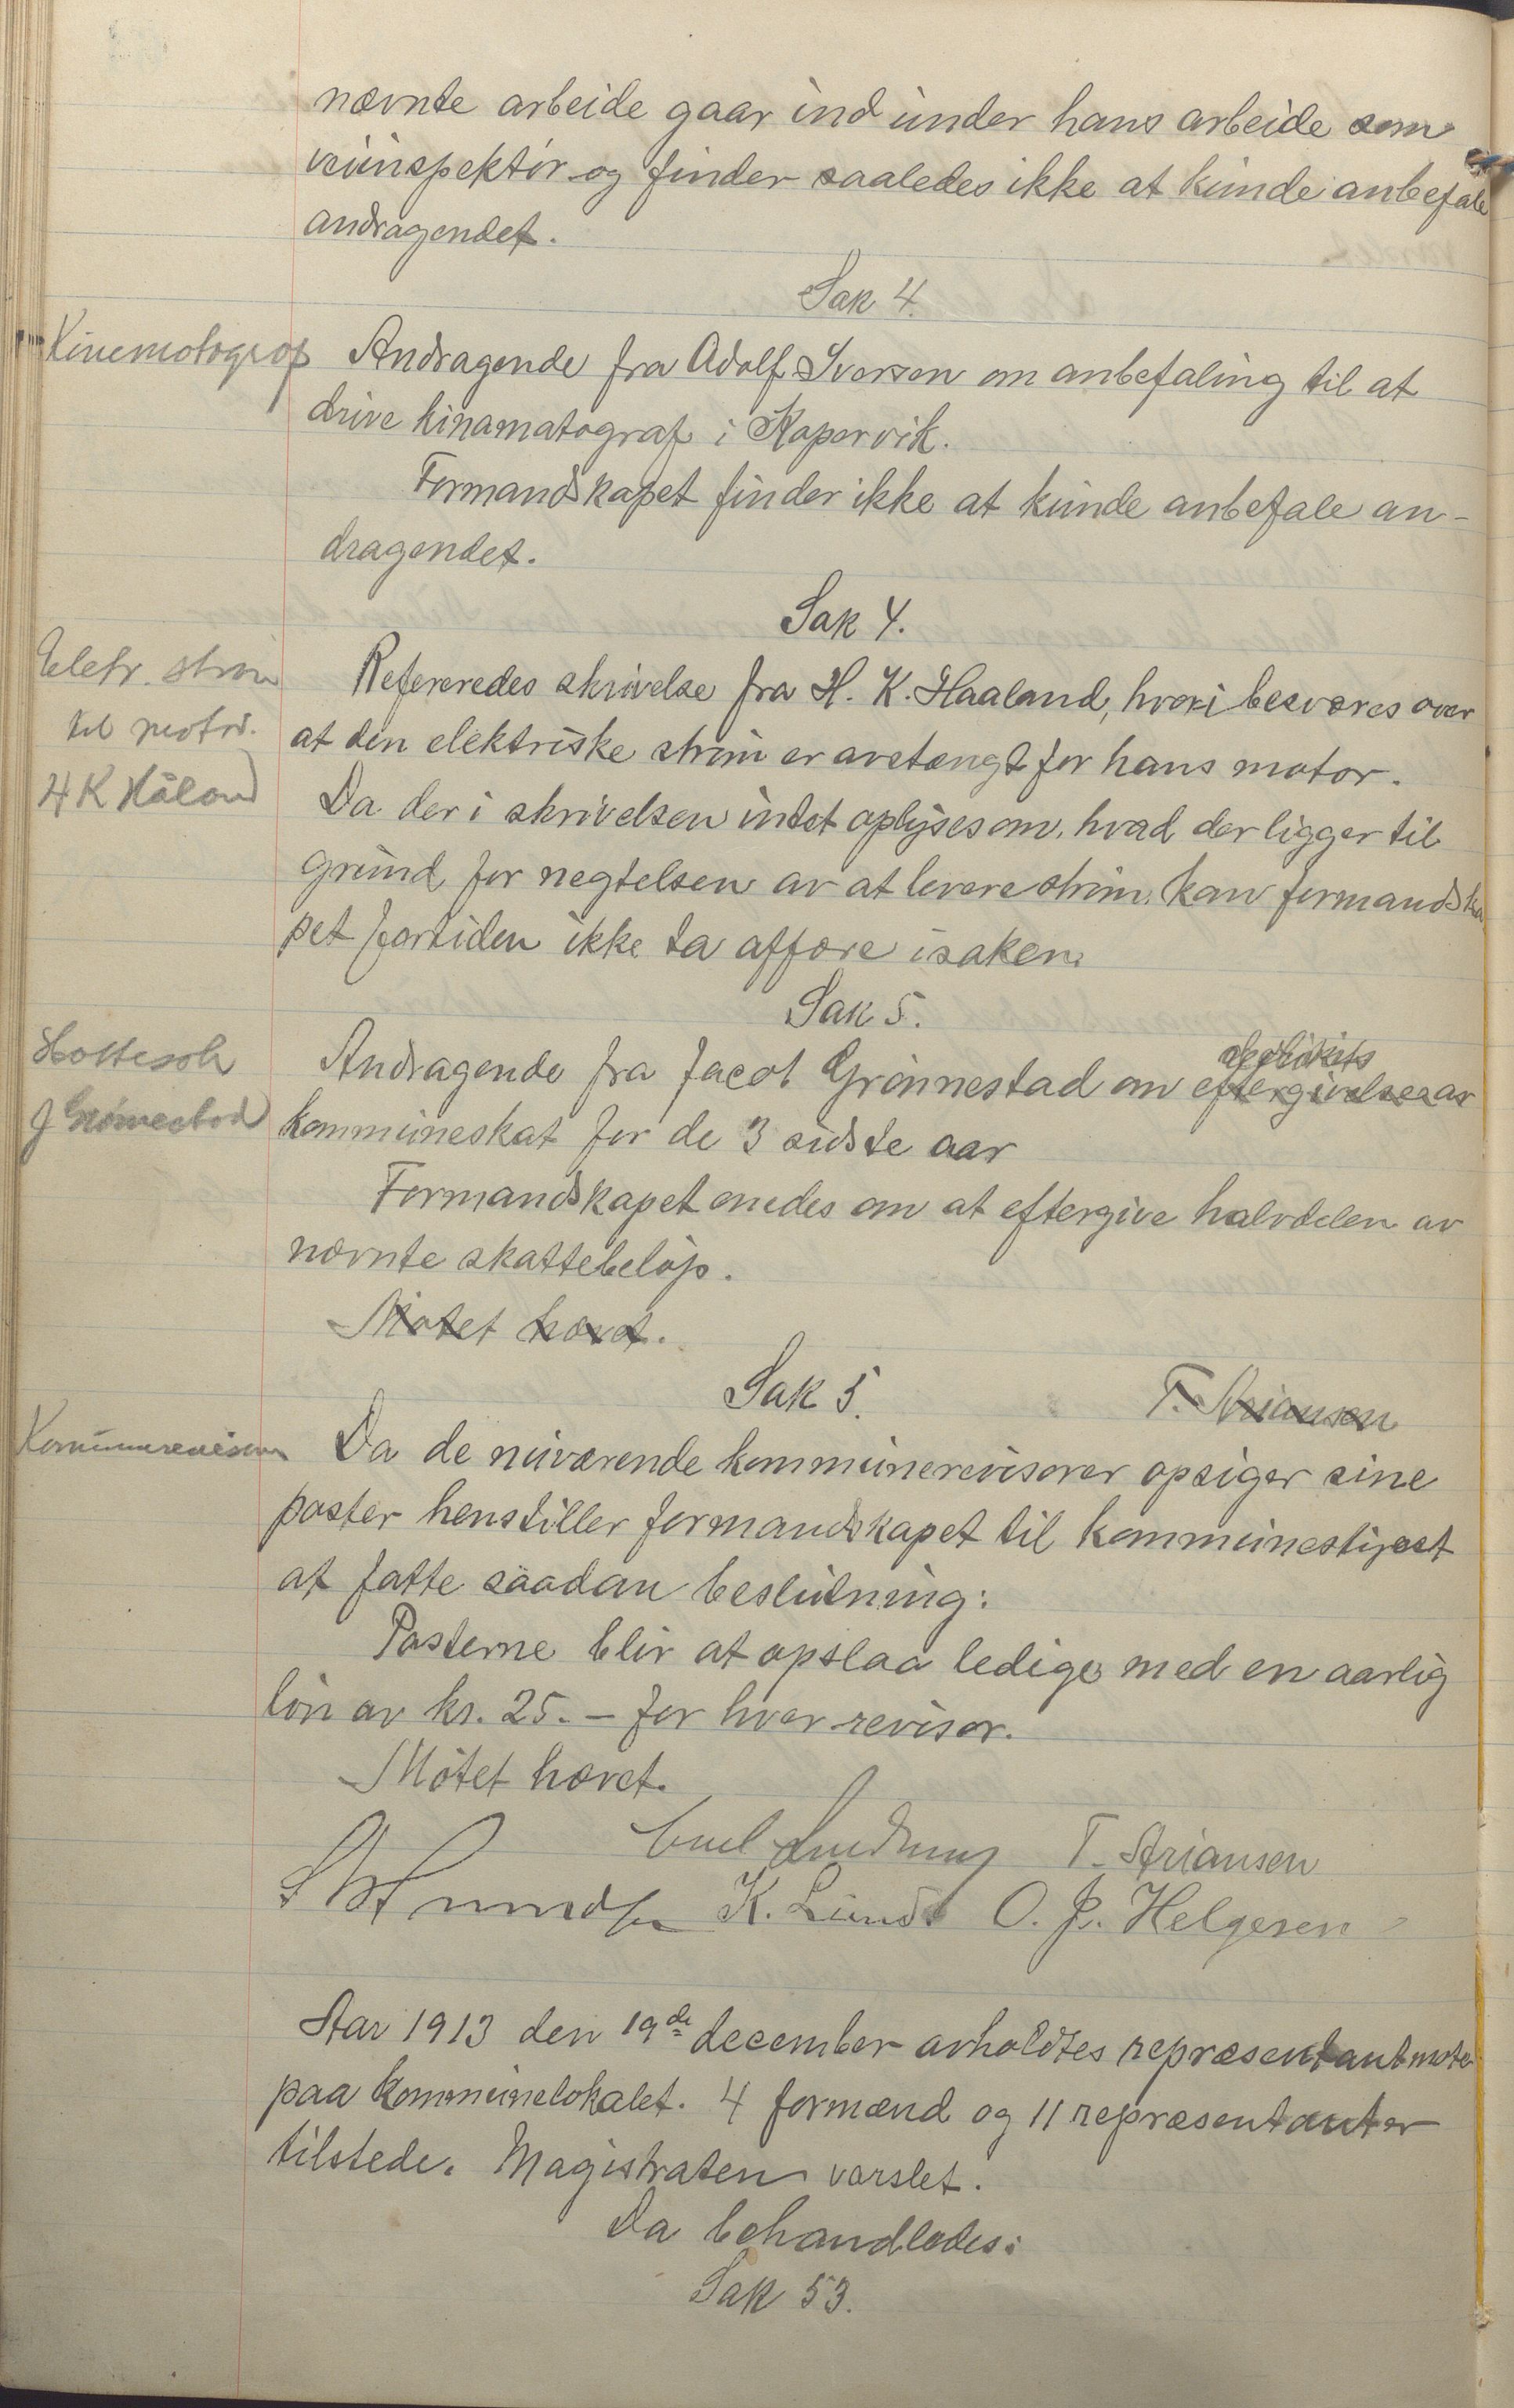 nævnte arbeide gaar ind under hans arbeide som
veiinspektör og finder saaledes ikke at kunde anbefale
andragendet.
Sak 4.
Kinematograf
Andragende fra Adolf Iversen om anbefaling til at
drive kinamatograf i Kopervik.
Formandskapet finder ikke at kunde anbefale an-
dragendet.
Sak 4.
Elektr. strøm
til motor.
H K Håland
Refereredes skrivelse fra H. K. Haaland, hvori besværes over
at den elektriske strøm er avstængt for hans motor.
Da der i skrivelsen intet oplyses om, hvad der ligger til
grund for negtelsen av at levere strøm, kan formandska
pet fortiden ikke ta affære i saken.
Sak 5.
J Grønnestad
Andragende fra Jacob Grønnestad om eftergivelse av
kommuneskat for de 3 sidste aar
Formandskapet enedes om at eftergive halvdelen av
nævnte skattebeløp.
Møtet hævet.
Sak 5.
T. Ariansen
Kommunerevisorer
Da de nuværende kommunerevisorer opsiger sine
poster henstiller formandskapet til kommunestyret
at fatte saadan beslutning:
Posterne blir at opslaa ledige med en aarlig
løn av kr. 25.- for hver revisor.
Møtet hævet.
T. Ariansen
K. Lund O. J. Helgesen
Aar 1913 den 19de december avholdtes repræsentantmøte
paa kommunelokalet. 4 formænd og 11 repræsentanter
tilstede. Magistraten varslet.
Da behandledes:
Sak 53.